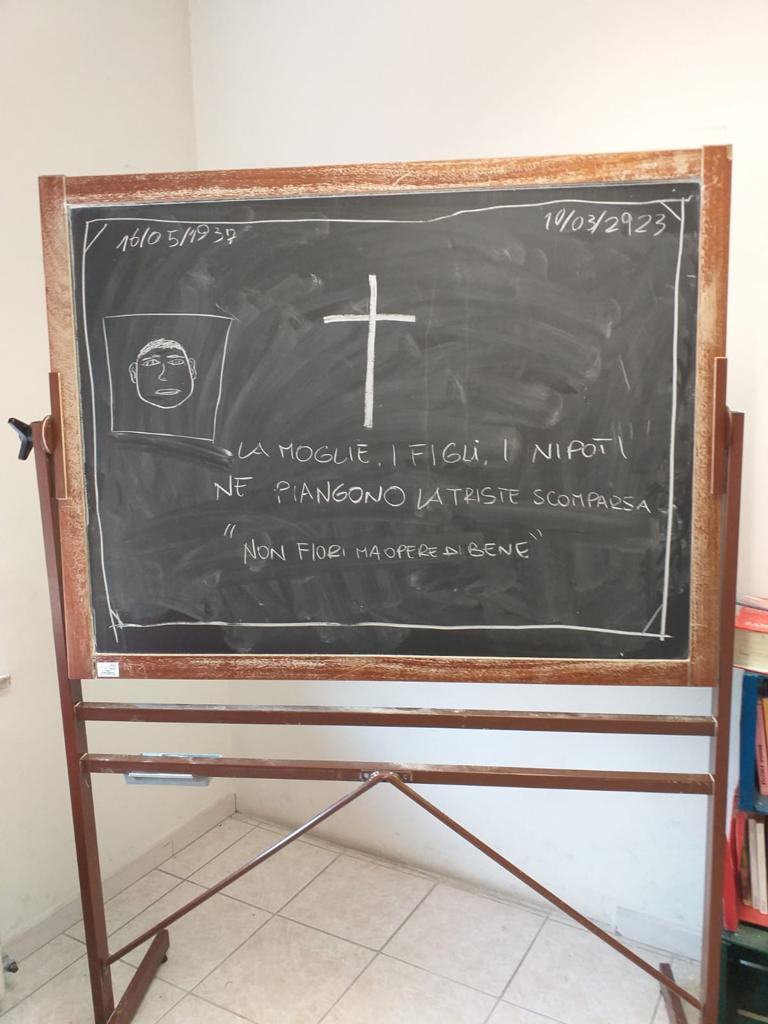 16/05/1937
10/03/2923
LA MOGLIE, I FIGLI, I NIPOTI
NE PIANGONO LA TRISTE SCOMPARSA
"NON FIORI MA OPERE DI BENE"